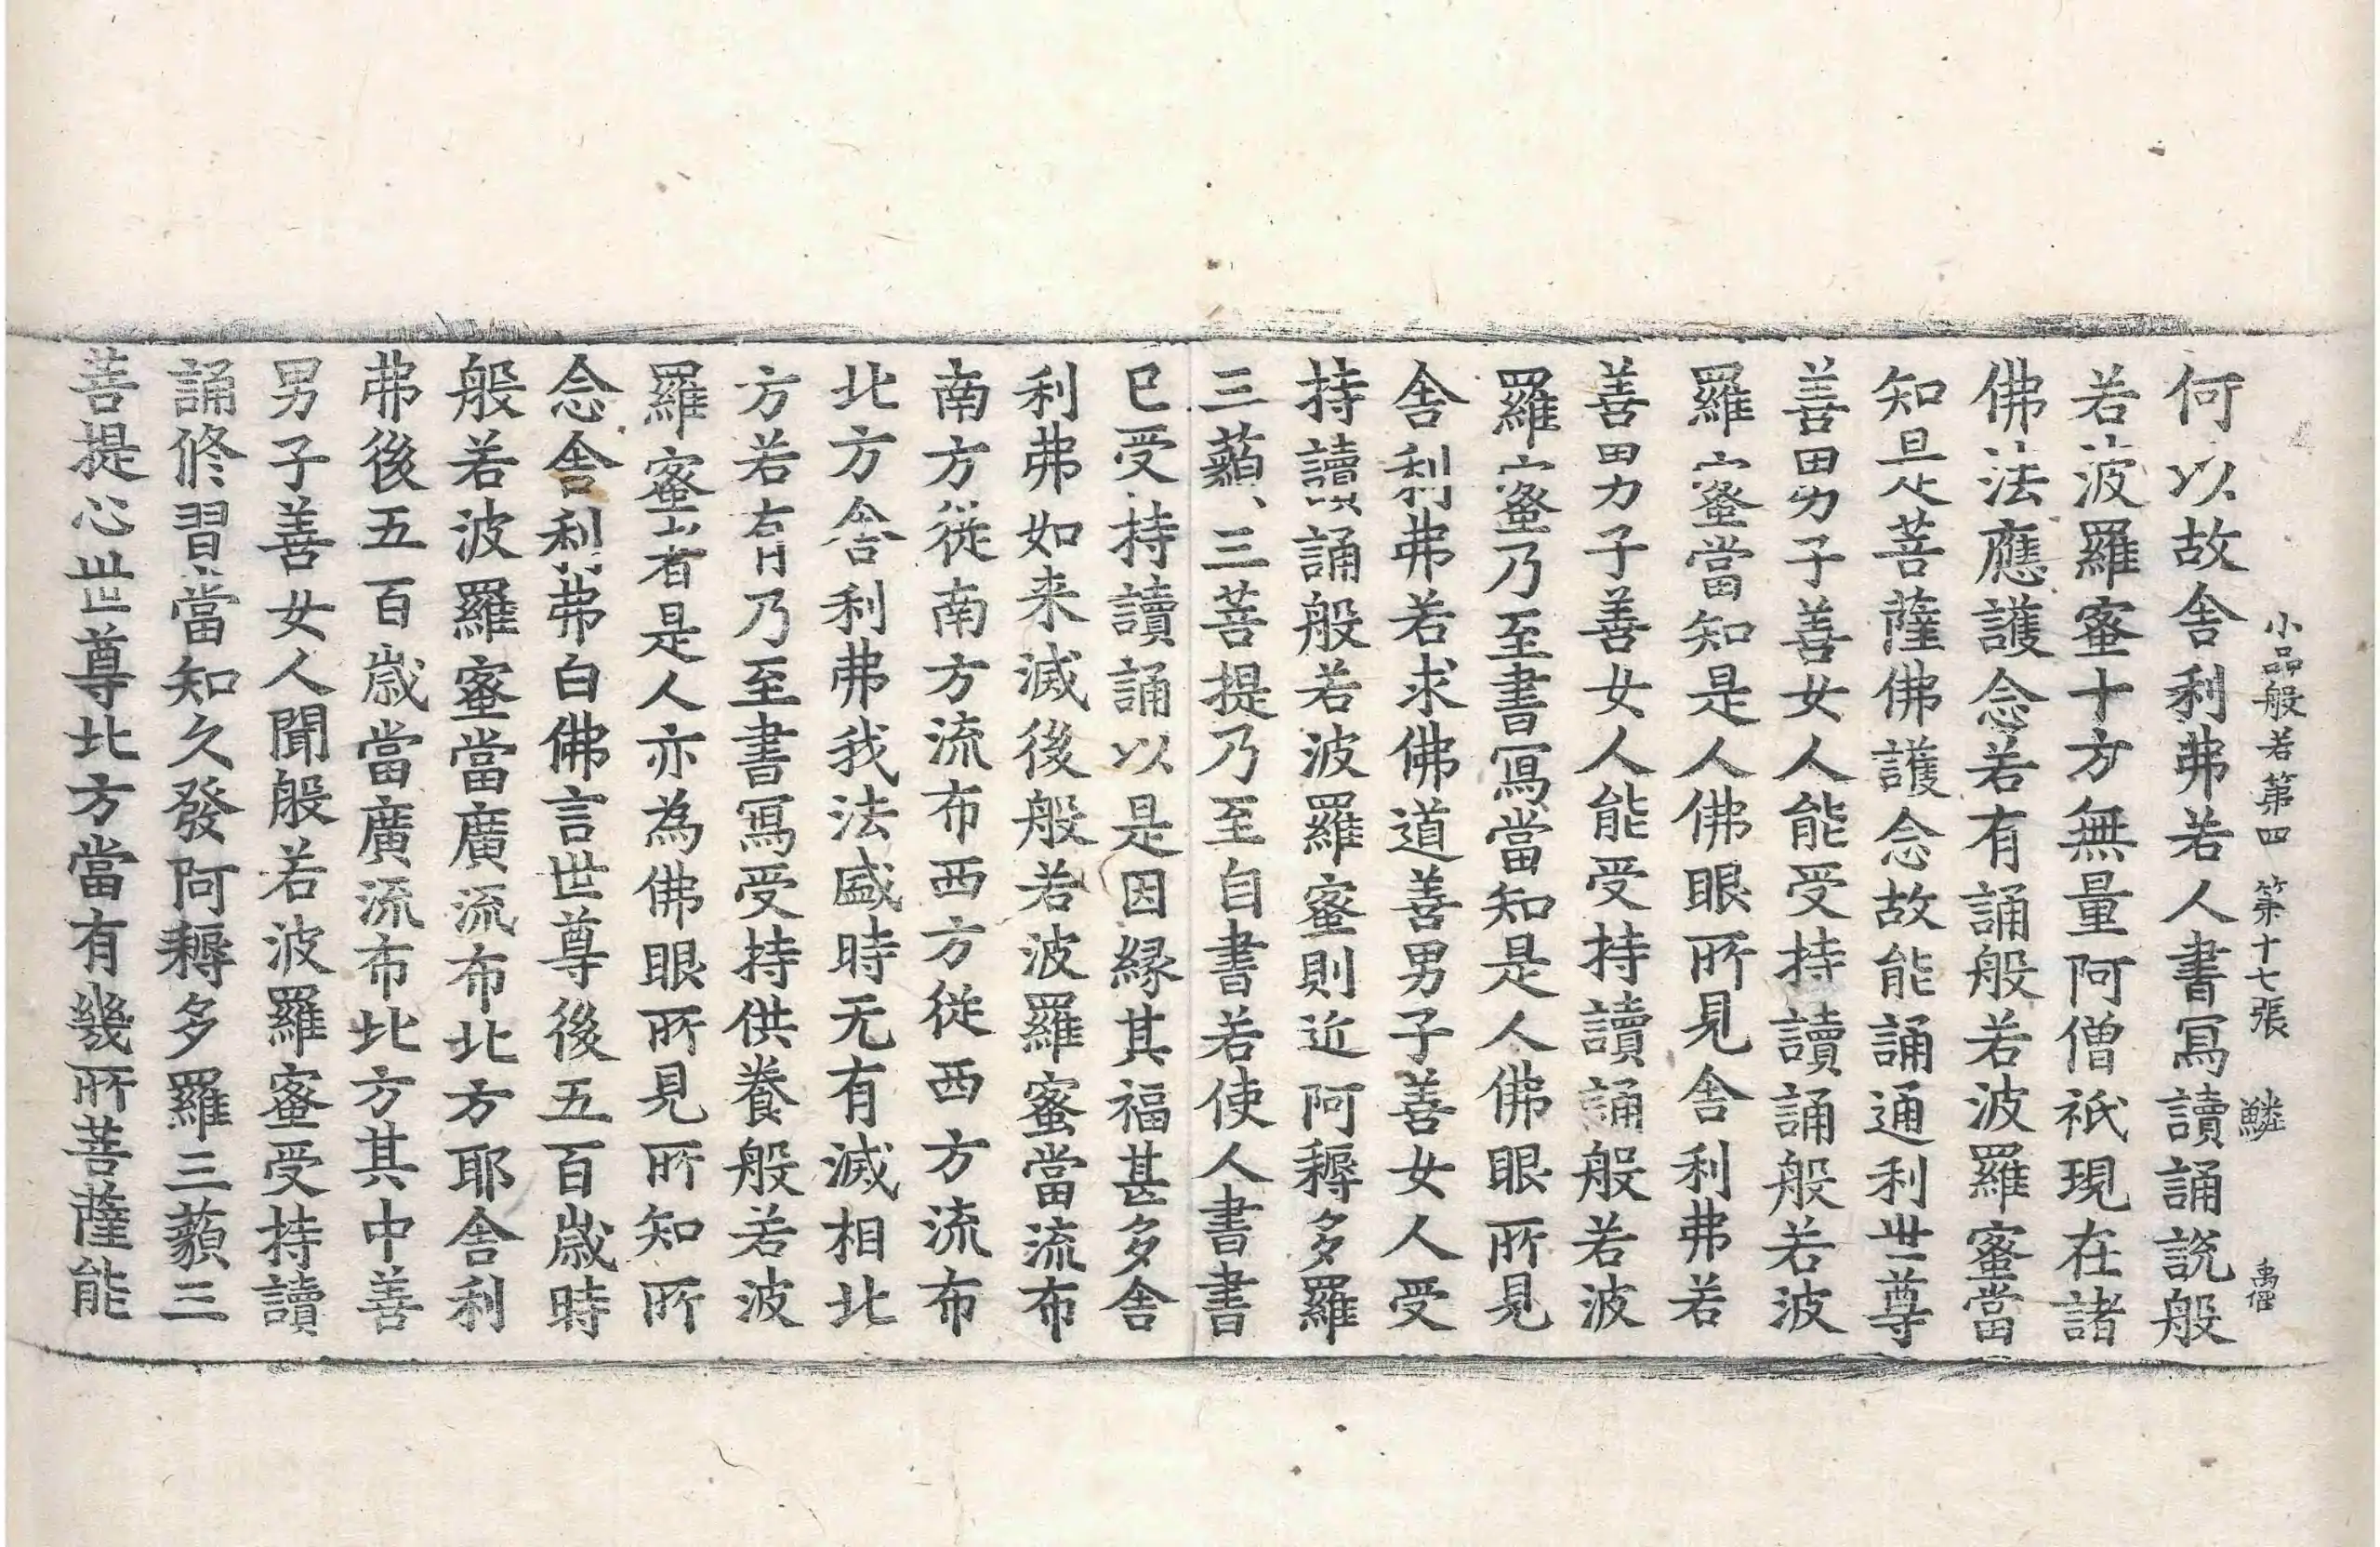 小品般若第四 第十七張 鱗 禹偓
何以故舍利弗若人書寫讀誦說般
若波羅蜜十方無量阿僧祇現在諸
佛法應護念若有誦般若波羅蜜當
知是菩薩佛護念故能誦通利世尊
善男子善女人能受持讀誦般若波
羅蜜當知是人佛眼所見舍利弗若
善男子善女人能受持讀誦般若波
羅蜜乃至書寫當知是人佛眼所見
舍利弗若求佛道善男子善女人受
持讀誦般若波羅蜜則近阿耨多羅
三藐三菩提乃至自書若使人書書
已受持讀誦以是因緣其福甚多舍
利弗如来滅後般若波羅蜜當流布
南方從南方流布西方從西方流布
北方舍利弗我法盛時无有滅相北
方若有乃至書寫受持供養般若波
羅蜜者是人亦為佛眼所見所知所
念舍利弗白佛言世尊後五百歲時
般若波羅蜜當廣流布北方耶舍利
弗後五百歲當廣流布北方其中善
男子善女人聞般若波羅蜜受持讀
誦修習當知久發阿耨多羅三藐三
菩提心世尊北方當有幾所菩薩能